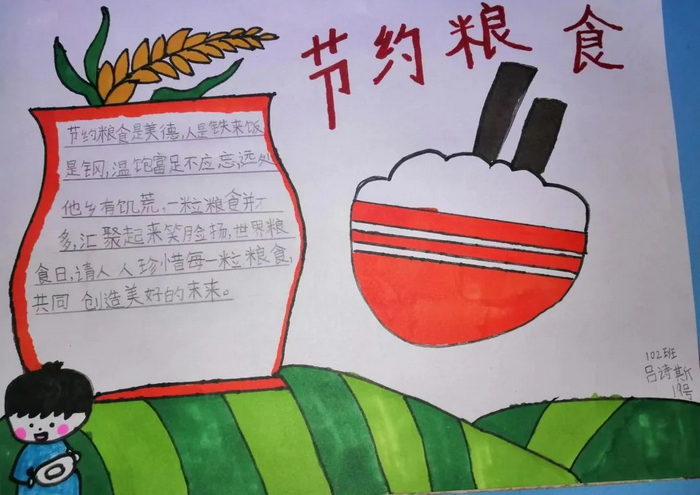 节约粮食
节约粮食是美德,人是铁来饭
是钢,温饱富足不应忘,远处
他乡有饥荒,一粒粮食并不
多,汇聚起来笑脸扬,世界粮
食日,请人人珍惜每一粒粮食,
共同 创造美好的未来。
102班
吕诗斯
19号